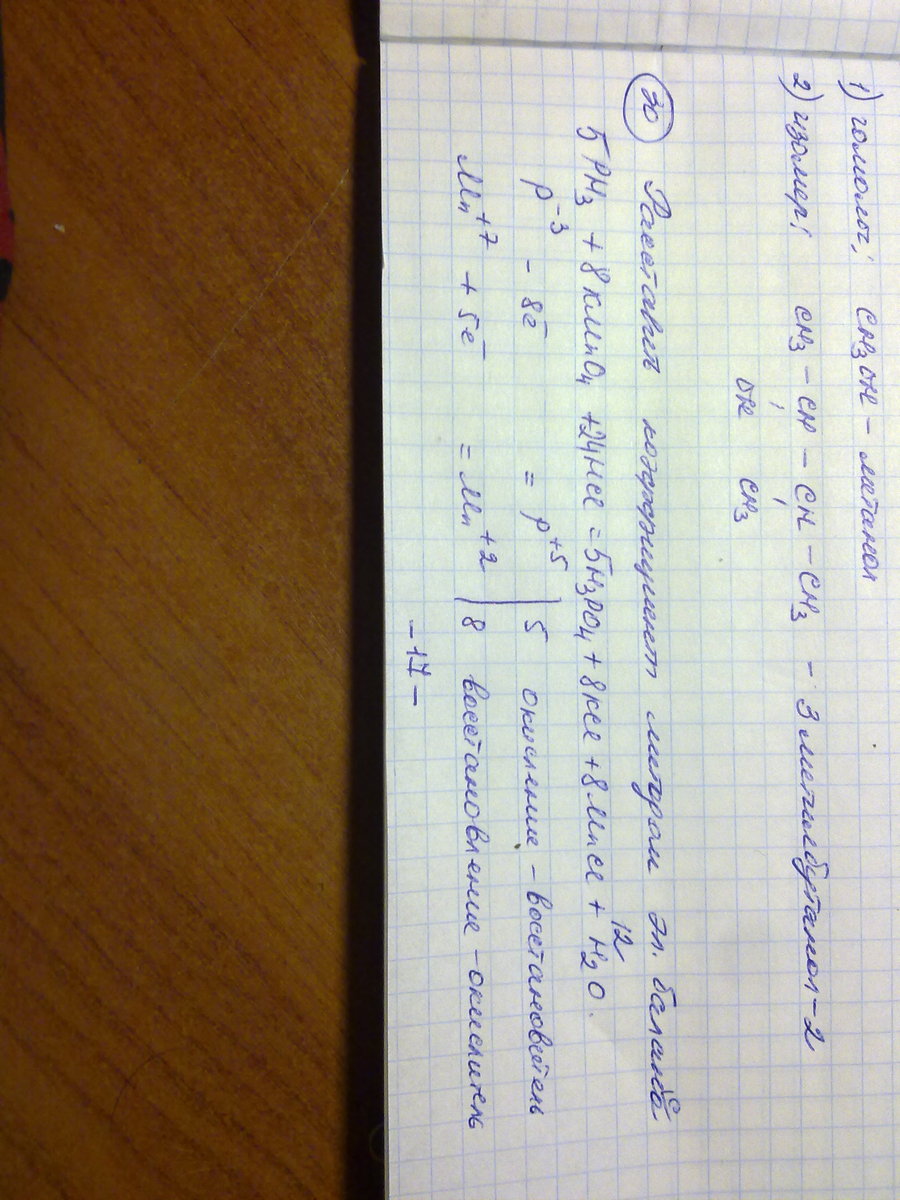 1) гомолог; CH3OH – метанол
2) изомер; CH3 – CH – CH – CH3 – 3 метилбутанол – 2
OH CH3
30 Расставить коэффициент методом эл. баланса
5PH3 + 8KMnO4 + 24HCl = 5H3PO4 + 8KCl + 8MnCl + 12 H2O.
P⁻³ – 8ē = P⁺⁵ | 5 окисление – восстановитель
Mn⁺⁷ + 5ē = Mn⁺² | 8 восстановление – окислитель
– 17 –